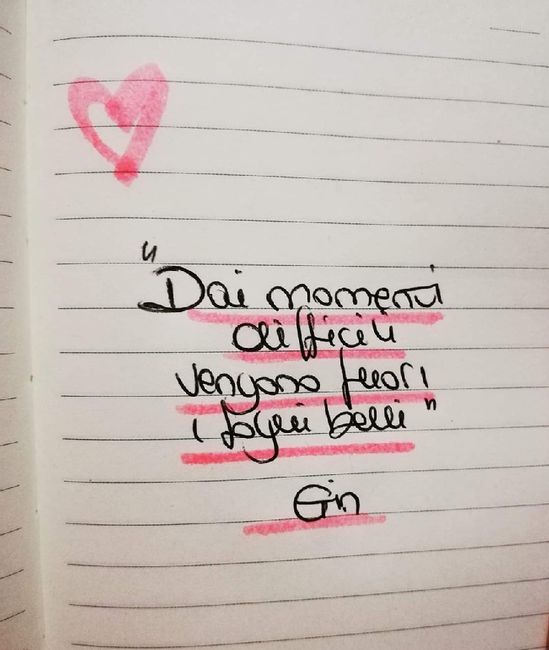 "Dai momenti
difficili
vengono fuori
i fogli belli"
Gin